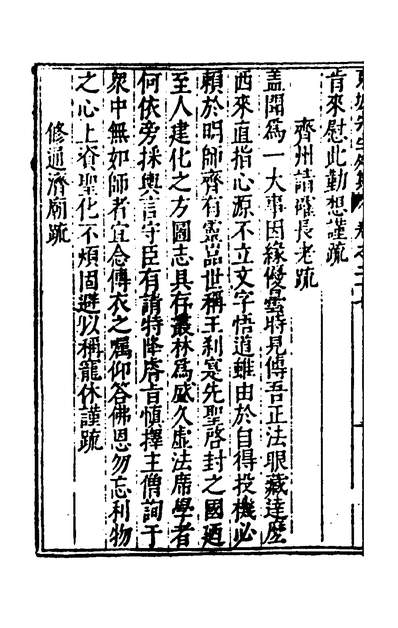 肯來慰此勤想謹疏
齊州請確長老疏
蓋聞爲一大事因緣優曇時見傳吾正法眼藏達麼
西來直指心源不立文字悟道雖由於自得投機必
賴於明師齊有靈嵓世稱王刹寔先聖啓封之國迺
至人建化之方圖志具存叢林爲盛久虛法席學者
何依旁採輿言守臣有請特降睿旨愼擇主僧詢于
衆中無如師者宜念傳衣之囑仰荅佛恩勿忘利物
之心上資聖化不煩固避以稱寵休謹疏
修通濟廟疏